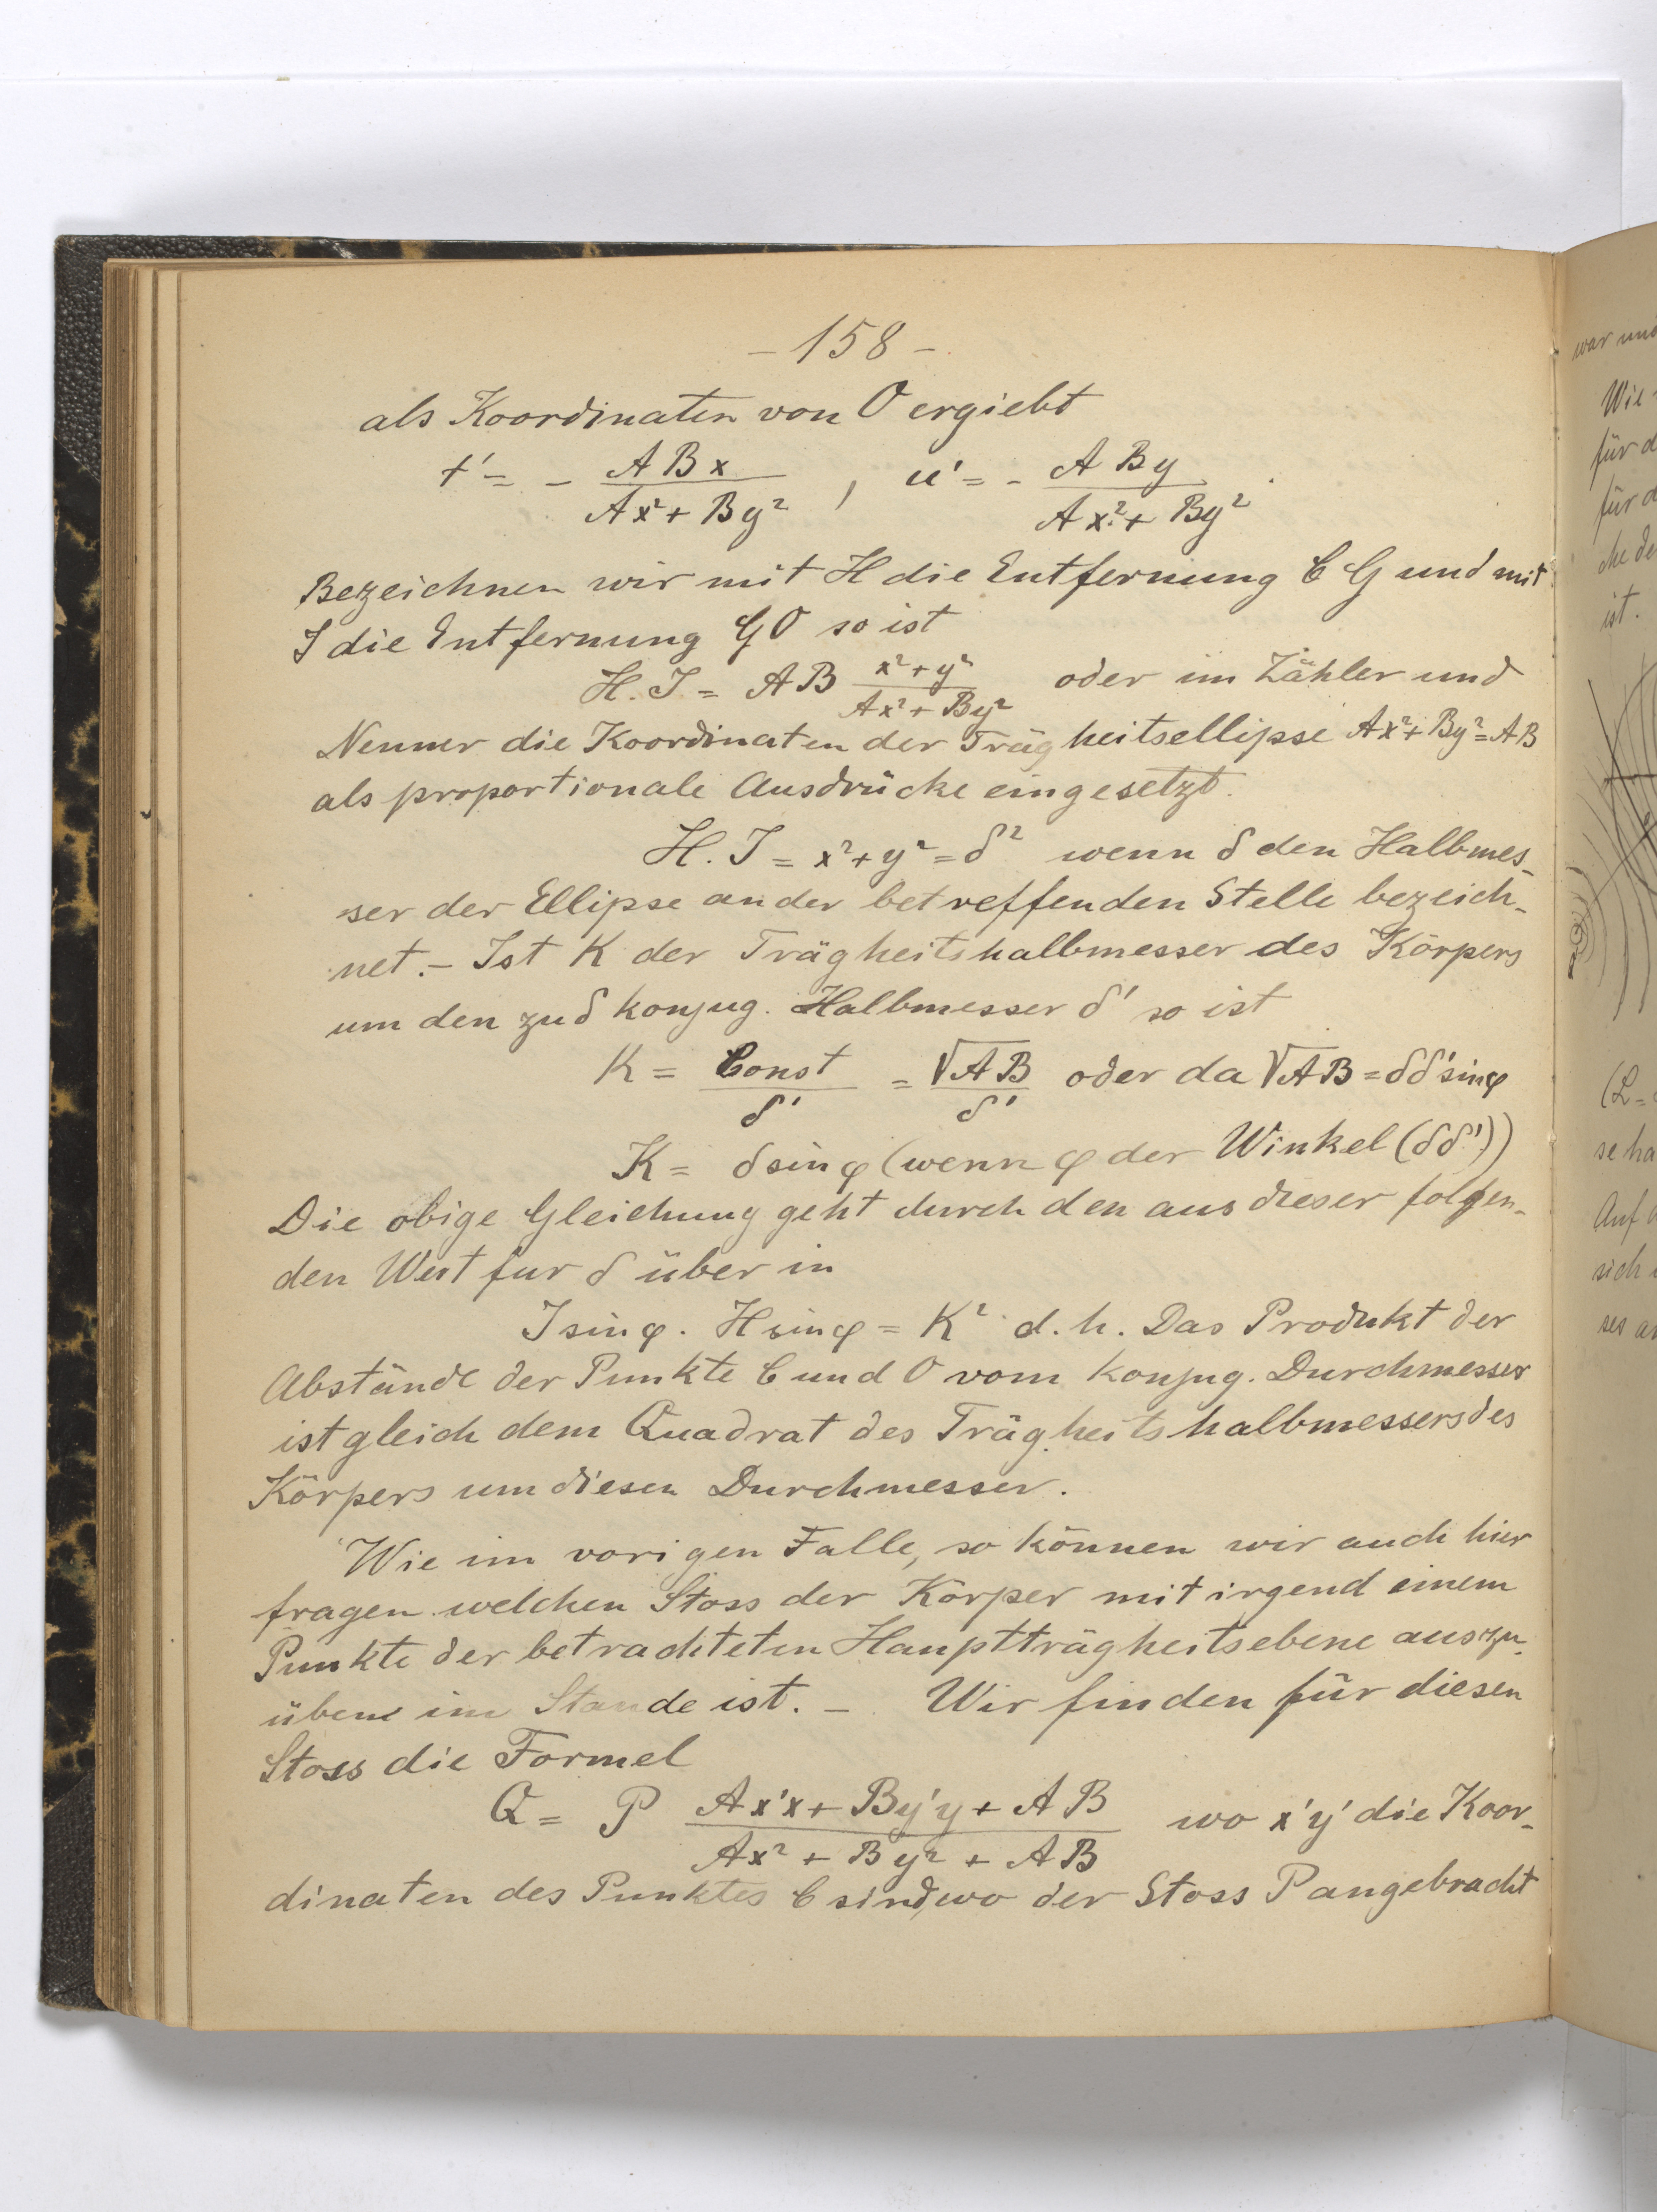 – 158 –
als Koordinaten von O ergiebt
t' = - ABx / (Ax² + By²) , u' = - ABy / (Ax² + By²) .
Bezeichnen wir mit H die Entfernung C G und mit
J die Entfernung G O so ist
H. J = AB (x² + y²) / (Ax² + By²) oder im Zähler und
Nenner die Koordinaten der Trägheitsellipse Ax² + By² = AB
als proportionale Ausdrücke eingesetzt.
H. J = x² + y² = δ² wenn δ den Halbmes-
ser der Ellipse an der betreffenden Stelle bezeich-
net. – Ist K der Trägheitshalbmesser des Körpers
um den zu δ konjug. Halbmesser δ' so ist
K = Const / δ' = √AB / δ' oder da √AB = δδ' sin φ
K = δ sin φ (wenn φ der Winkel (δδ'))
Die obige Gleichung geht durch den aus dieser folgen-
den Wert fur δ über in
J sin φ . H sin φ = K² d. h. Das Produkt der
Abstände der Punkte C und O vom konjug. Durchmesser
ist gleich dem Quadrat des Trägheitshalbmessers des
Körpers um diesen Durchmesser.
Wie im vorigen Falle, so können wir auch hier
fragen welchen Stoss der Körper mit irgend einem
Punkte der betrachteten Hauptträgheitsebene auszu-
üben im Stande ist. – Wir finden für diesen
Stoss die Formel
Q = P (Ax'x + By'y + AB) / (Ax² + By² + AB) wo x'y' die Koor-
dinaten des Punktes C sind, wo der Stoss P angebracht
war und
Wie
für d
für d
che de
ist.
(L =
se ha
Auf
sich
ses an